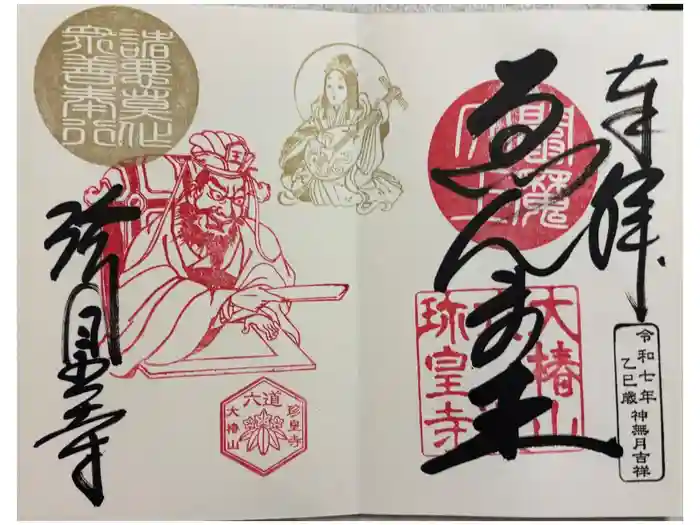 奉拝
ゑんま王
大椿山
珎皇寺
令和七年
乙巳歳神無月吉祥
諸悪莫作
衆善奉行
王
珍皇寺
六道
珍皇寺
大椿山